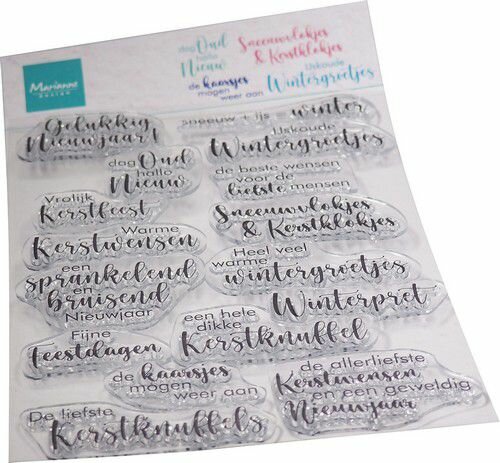 Marianne
Design
dag Oud
hallo
Nieuw
Sneeuwvlokjes
& Kerstklokjes
de kaarsjes
mogen
weer aan
IJskoude
Wintergroetjes
Gelukkig
Nieuwjaar!
sneeuw + ijs = winter
IJskoude
Wintergroetjes
dag Oud
hallo
Nieuw
de beste wensen
voor de
liefste mensen
Vrolijk
Kerstfeest
Sneeuwvlokjes
& Kerstklokjes
Warme
Kerstwensen
Heel veel
warme
wintergroetjes
een
sprankelend
bruisend
Nieuwjaar
Winterpret
een hele
dikke
Kerstknuffel
Fijne
feestdagen
de kaarsjes
mogen
weer aan
de allerliefste
Kerstwensen
en een geweldig
Nieuwjaar
De liefste
Kerstknuffels